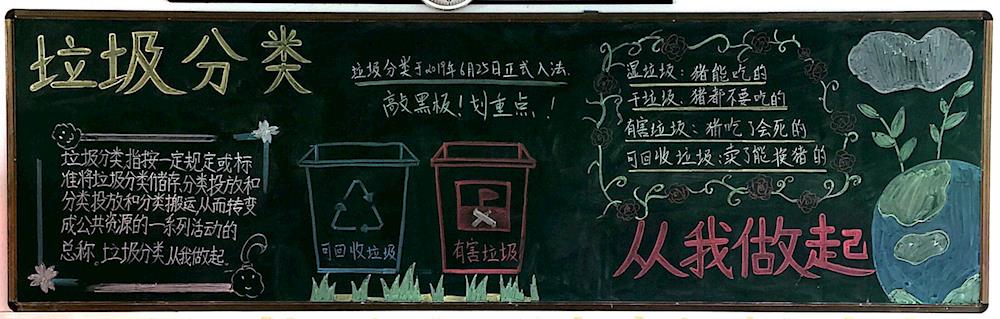 垃圾分类
垃圾分类指按一定规定或标
准将垃圾分类储存,分类投放和
分类投放和分类搬运从而转变
成公共资源的一系列活动的
总称。垃圾分类从我做起。
垃圾分类于2019年6月25日正式入法.
敲黑板!划重点!
可回收垃圾
有害垃圾
湿垃圾:猪能吃的
干垃圾、猪都不要吃的
有害垃圾:猪吃了会死的
可回收垃圾:卖了能换猪的
从我做起